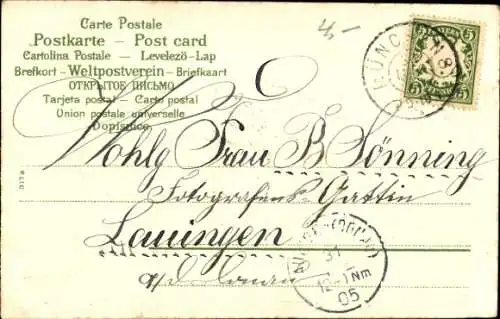 4,-
Carte Postale
Postkarte – Post card
Cartolina Postale – Levelezö-Lap
Brefkort – Weltpostverein – Briefkaart
ОТКРЫТОЕ ПИСЬМО
Tarjeta postal – Carto postal
Union postale universelle
Dopisnice
5
5
MÜNC
8
Wohlg Frau B Sönning
Fotografens-Gattin
Lauingen
a/d Donau
LAUINGEN (DONAU)
31
12-1 Nm
05